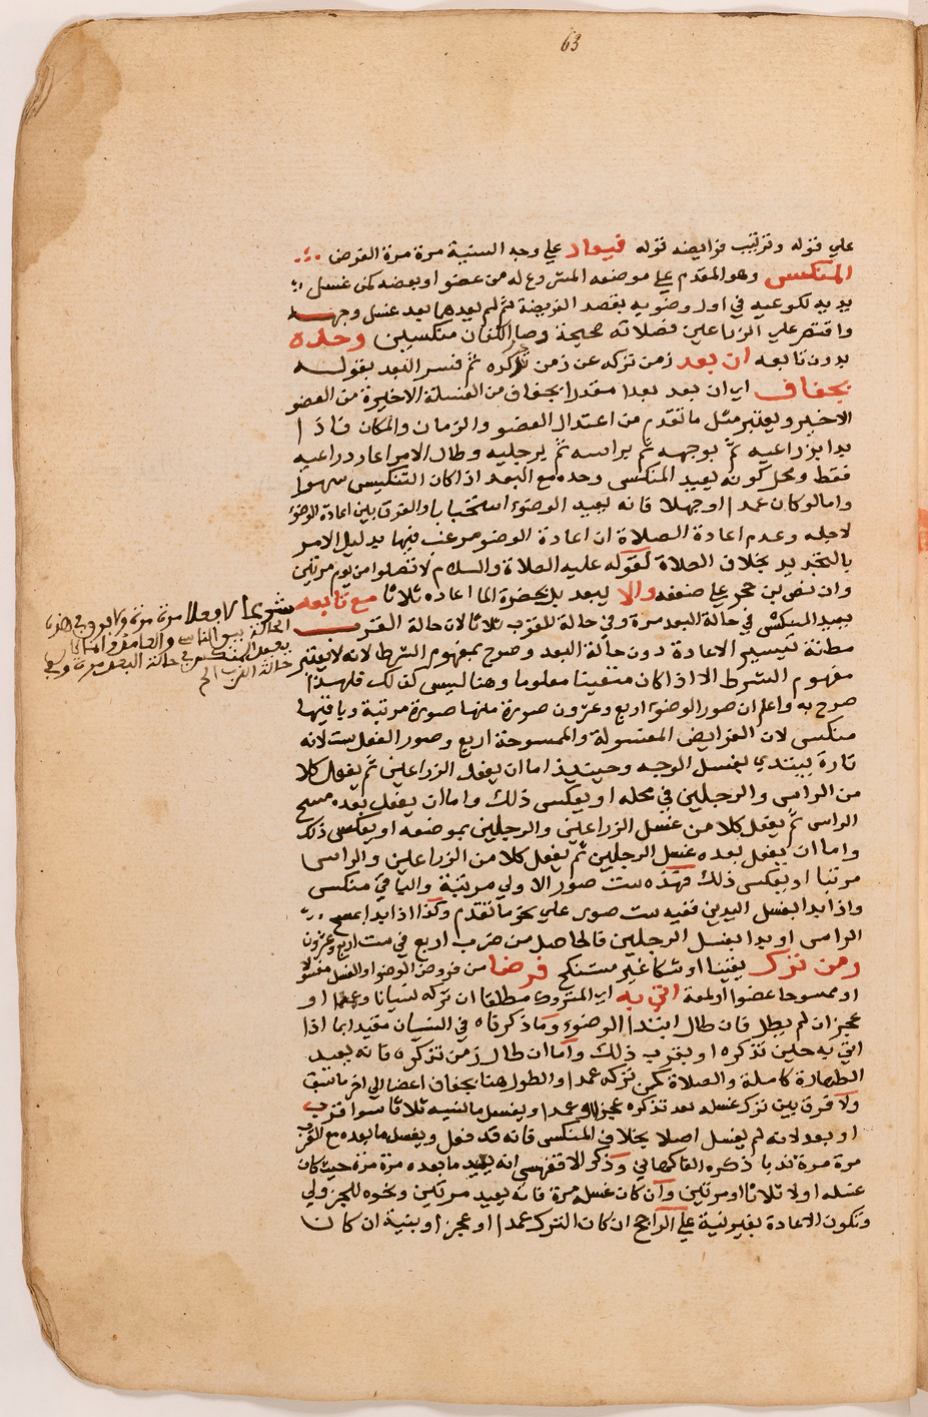 63
علي قوله وترتيب فرايضه قوله فيعاد علي وجه السنية مرة مرة الفرض
المنكس وهو المقدم علي موضعه المشروع له من عضو او بعضه كمن غسل
يديه لكوعيه في اول وضويه بقصد الفريضة ثم لم يعدهما بعد غسل وجهه
واقتصر علي الزراعين فصلاته صحيحة وصار الكفان منكسين وحده
بدون تابعه ان بعد زمن تركه عن زمن تذكره ثم فسر البعد بقوله
بجفاف اي ان بعد بعدا مقدرا بجفاف من الغسلة الاخيرة من العضو
الاخير ويعتبر مثل ما تقدم من اعتدال العضو والزمان والمكان فاذا
بدا بزراعيه ثم بوجهه ثم براسه ثم برجليه وطال الامر اعاد دراعيه
فقط ومحل كونه يعيد المنكس وحده مع البعد اذا كان التنكيس سهوا
واما لو كان عمدا او جهلا فانه يعيد الوضوء استحبابا والفرق بين اعادة الوضوء
لاجله وعدم اعادة الصلاة ان اعادة الوضو مرغب فيها بدليل الامر
بالتجديد بخلاف الصلاة لقوله عليه الصلاة والسلام لا تصلوا من يوم مرتين
وان نص بن حجر علي ضعفه والا يبعد بل بحضرة الما اعاده ثلاثا مع تابعه
شرعا لا فعلا مرة مرة ولا فرق في هذه
الحالة بين الناسي والعامد وانما كان
يفعل المنكس في حالة البعد مرة وفي
حالة القرب الخ
يعيد المنكس في حالة البعد مرة وفي حالة القرب ثلاثا لان حالة القرب
مظنة تيسير الاعادة دون حالة البعد وصرح بمفهوم الشرط لانه لا يعتبر
مفهوم الشرط الا اذا كان متعينا معلوما وهنا ليس كذلك فلهذا
صرح به واعلم ان صور الوضوء اربع وعشرون صورة منها صورة مرتبة وباقيها
منكس لان الفرايض المغسولة والممسوحة اربع وصور الفعل ست لانه
تارة يبتدي بغسل الوجه وحينيذ اما ان يفعل الزراعين ثم يفعل كلا
من الراس والرجلين في محله او يعكس ذلك واما ان يفعل بعده مسح
الراس ثم يفعل كلا من غسل الزراعين والرجلين بموضعه او يعكس ذلك
واما ان يفعل بعده غسل الرجلين ثم يفعل كلا من الزراعين والراس
مرتبا او يعكس ذلك فهذه ست صور الاولي مرتبة والباقي منكس
واذا بدا بغسل اليدين ففيه ست صور علي نحو ما تقدم وكذا اذا بدا بمسح
الراس او بدا بغسل الرجلين فالحاصل من ضرب اربع في ست اربع وعشرون
ومن ترك يقينا او شكا غير مستنكح فرضا من فروض الوضو او الغسل مغسولا
او ممسوحا عضوا او لمعة اتي به اي المتروك مطلقا ان تركه نسيانا وعمدا او
عجز ان لم يطل فان طال ابتدا الوضوء وما ذكرناه في النسيان مقيد بما اذا
اتي به حين تذكره او بقرب ذلك واما ان طال زمن تذكره فانه يعيد
الطهارة كاملة والصلاة كمن تركه عمدا والطول هنا بجفاف اعضا الي اخر ما سبق
ولا فرق بين ترك غسله بعد تذكره عجزا او عمدا ويغسل ما نسيه ثلاثا سوا قرب
او بعد لانه لم يغسل اصلا بخلاف المنكس فانه قد فعل ويغسل ما بعده مع القرب
مرة مرة ندبا ذكره الفاكهاني وذكر الاقفهسي انه يعيد ما بعده مرة مرة حيث كان
غسله اولا ثلاثا او مرتين وان كان غسله مرة فانه يعيد مرتين ونحوه للجزولي
وتكون الاعادة بغير نية علي الراجح ان كان الترك عمدا او عجز او بنية ان كان